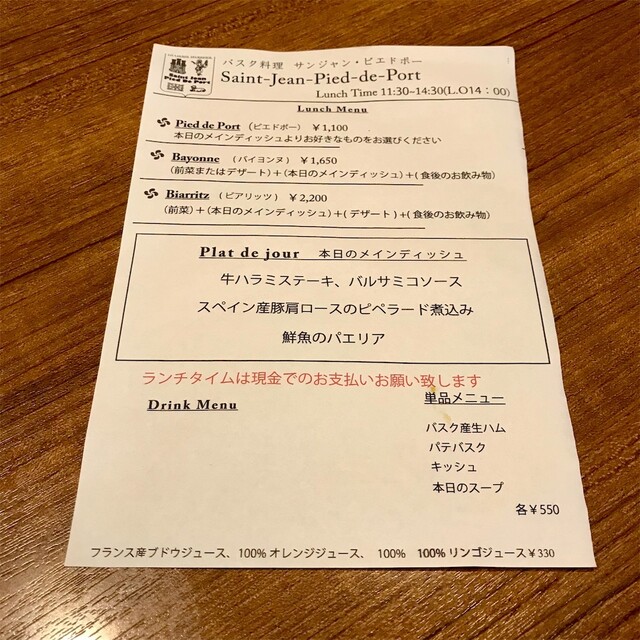 Saint Jean
Pied de Port
バスク料理 サンジャン・ピエドポー
Saint-Jean-Pied-de-Port
Lunch Time 11:30-14:30(L.O14：00)
Lunch Menu
Pied de Port （ピエドポー） ￥1,100
本日のメインディッシュよりお好きなものをお選びください
Bayonne （バイヨンヌ） ￥1,650
（前菜またはデザート）＋（本日のメインディッシュ）＋(食後のお飲み物）
Biarritz （ビアリッツ） ￥2,200
（前菜）＋（本日のメインディッシュ）＋( デザート ) ＋( 食後のお飲み物）
Plat de jour 本日のメインディッシュ
牛ハラミステーキ、バルサミコソース
スペイン産豚肩ロースのピペラード煮込み
鮮魚のパエリア
ランチタイムは現金でのお支払いお願い致します
Drink Menu
単品メニュー
バスク産生ハム
パテバスク
キッシュ
本日のスープ
各￥550
フランス産ブドウジュース、100% オレンジジュース、 100% 100% リンゴジュース￥330